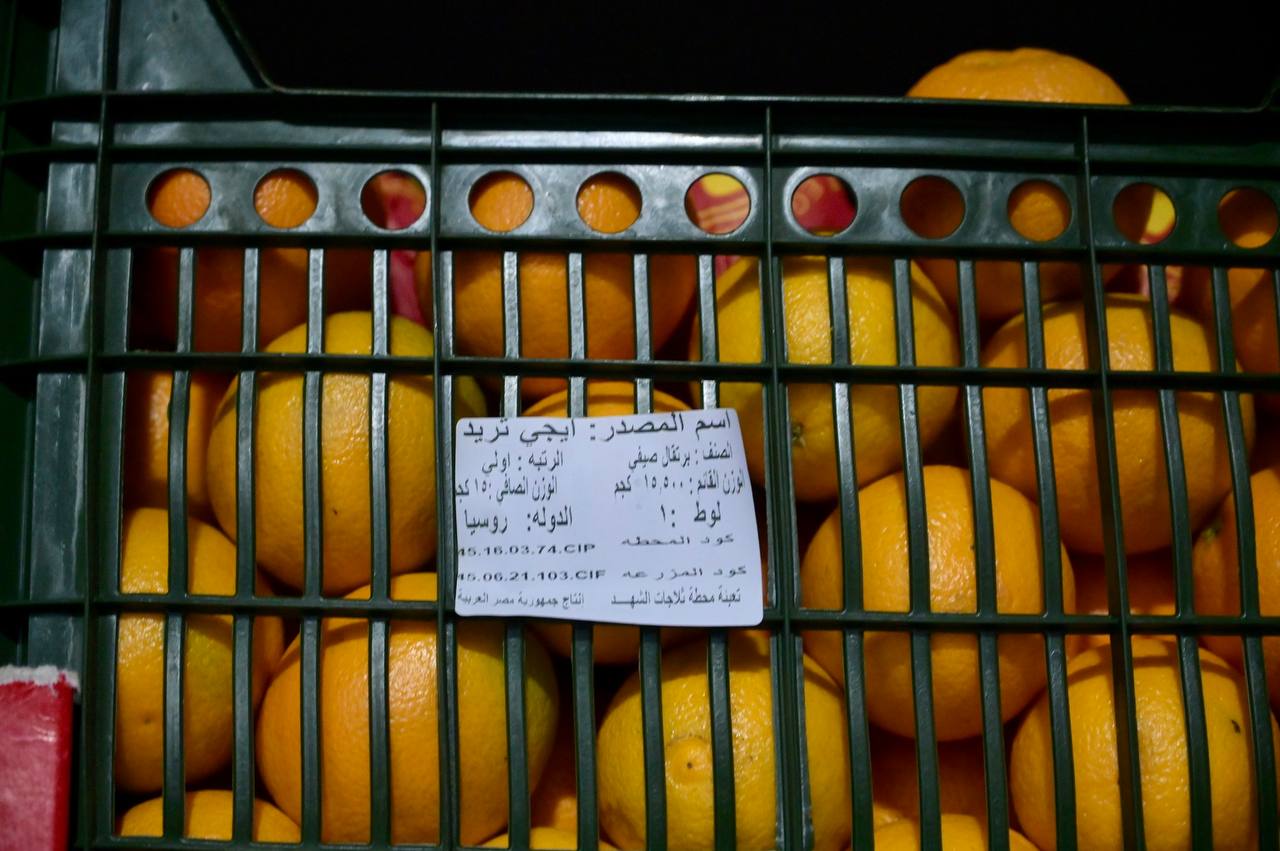 اسم المصدر: ايجي تريد
الصنف : برتقال صيفي الرتبه : اولي
الوزن القائم : ١٥,٥٠٠ كجم الوزن الصافي :١٥ كجـ
لوط :١ الدوله: روسيا
كود المحطه 45.16.03.74.CIP
كود المزرعه 45.06.21.103.CIF
تعبئة محطة ثلاجات الشهـد إنتاج جمهورية مصر العربية